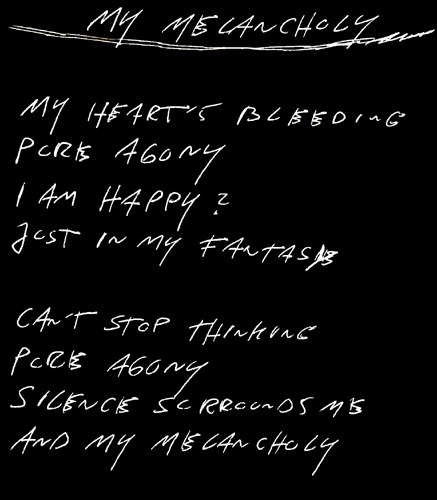 MY MELANCHOLY
MY HEART'S BLEEDING
PURE AGONY
I AM HAPPY?
JUST IN MY FANTASIE
CAN'T STOP THINKING
PURE AGONY
SILENCE SURROUNDS ME
AND MY MELANCHOLY